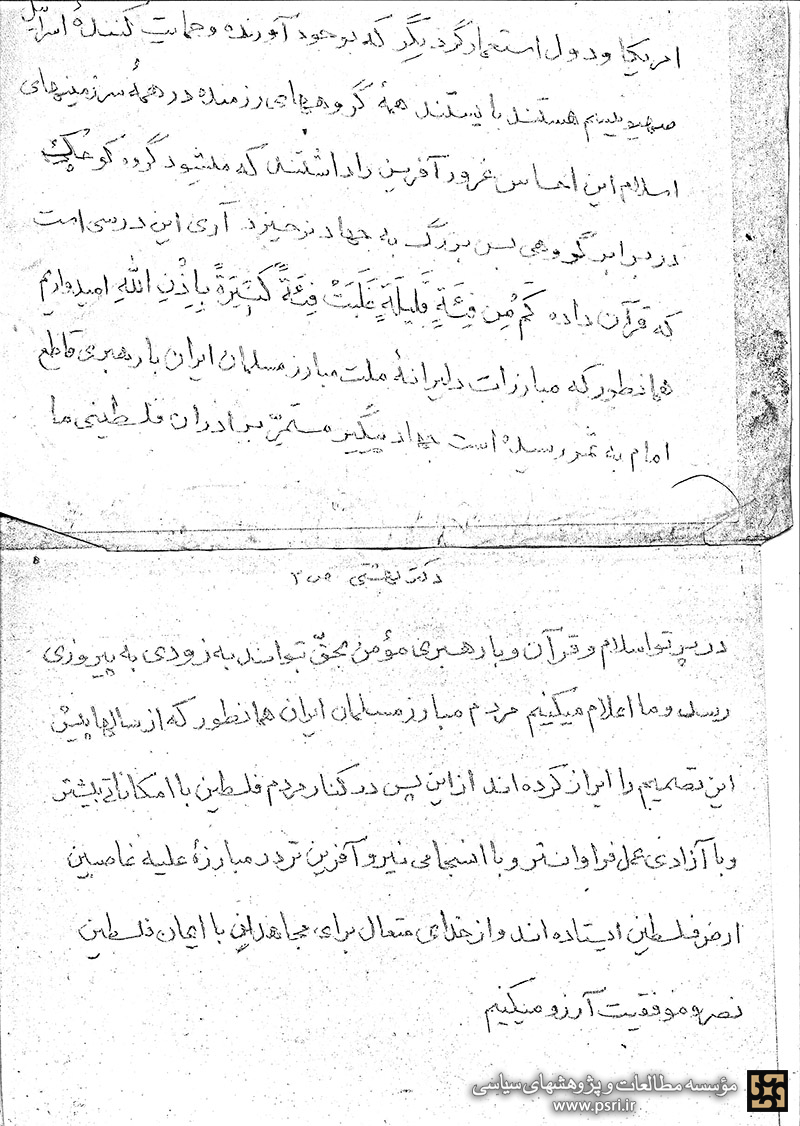 امریکا و دول استعمارگر دیگر که بوجود آورنده و حمایت کنندهٔ اسرائیل
صهیونیسم هستند بایستند همهٔ گروههای رزمنده در همهٔ سرزمینهای
اسلام این احساس غرور آفرین را داشتند که میشود گروه کوچک
در برابر گروهی بس بزرگ به جهاد برخیزد آری این درسی است
که قرآن داده کَم مِن فِئَةٍ قَلیلَةٍ غَلَبَتْ فِئَةً کَثیرَةً بِاِذْنِ اللهِ امیدواریم
همانطور که مبارزات دلیرانهٔ ملت مبارز مسلمان ایران با رهبری قاطع
امام به ثمر رسیده است جهاد پیگیر مستمرّ برادران فلسطینی ما
دکتر بهشتی
در پرتو اسلام و قرآن و با رهبری مؤمن بحقّ بتوانند به زودی به پیروزی
رسند و ما اعلام میکنیم مردم مبارز مسلمان ایران همانطور که از سالها پیش
این تصمیم را ابراز کرده اند از این پس در کنار مردم فلسطین با امکاناتی بیشتر
و با آزادی عمل فراوانتر و با انسجامی نیرو آفرین تر در مبارزهٔ علیه غاصبین
ارض فلسطین ایستاده اند و از خدای متعال برای مجاهدین با ایمان فلسطین
نصر و موفقیت آرزو میکنیم
مؤسسه مطالعات و پژوهشهای سیاسی
www.psri.ir